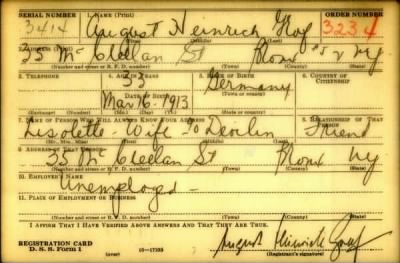 SERIAL NUMBER 1. NAME (Print) ORDER NUMBER
3414 August Heinrich Graf 3234
(First) (Middle) (Last)
35 Mc Cleelan St Bronx N.Y.
(Number and street or R. F. D. number) (Town) (County) (State)
3. TELEPHONE 4. AGE IN YEARS 5. PLACE OF BIRTH 6. COUNTRY OF CITIZENSHIP
33 Germany
DATE OF BIRTH (Town or county)
Mar 16. 1913
(Mo.) (Day) (Yr.) (State or country)
7. NAME OF PERSON WHO WILL ALWAYS KNOW YOUR ADDRESS 8. RELATIONSHIP OF THAT PERSON
Lisolette Wife % Devlin Friend
(Mr., Mrs., Miss) (First) (Middle) (Last)
9. ADDRESS OF THAT PERSON
35 Mc Cleelan St Bronx Ny
(Number and street or R. F. D. number) (Town) (County) (State)
10. EMPLOYER'S NAME
Unemployed -
11. PLACE OF EMPLOYMENT OR BUSINESS
(Number and street or R. F. D. number) (Town) (County) (State)
I AFFIRM THAT I HAVE VERIFIED ABOVE ANSWERS AND THAT THEY ARE TRUE.
REGISTRATION CARD
D. S. S. Form 1 (over) 16-17105 (Registrant's signature)
August Heinrich Graf